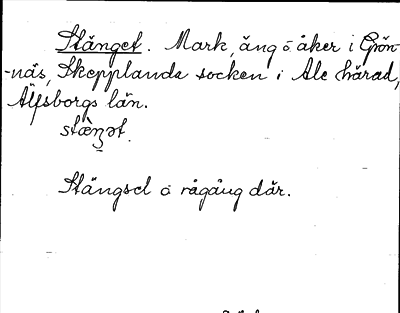 Stänget. Mark, äng o åker i Grön-
-näs, Skepplanda socken i Ale härad,
Älfsborgs län.
Stängsel o rågång där.